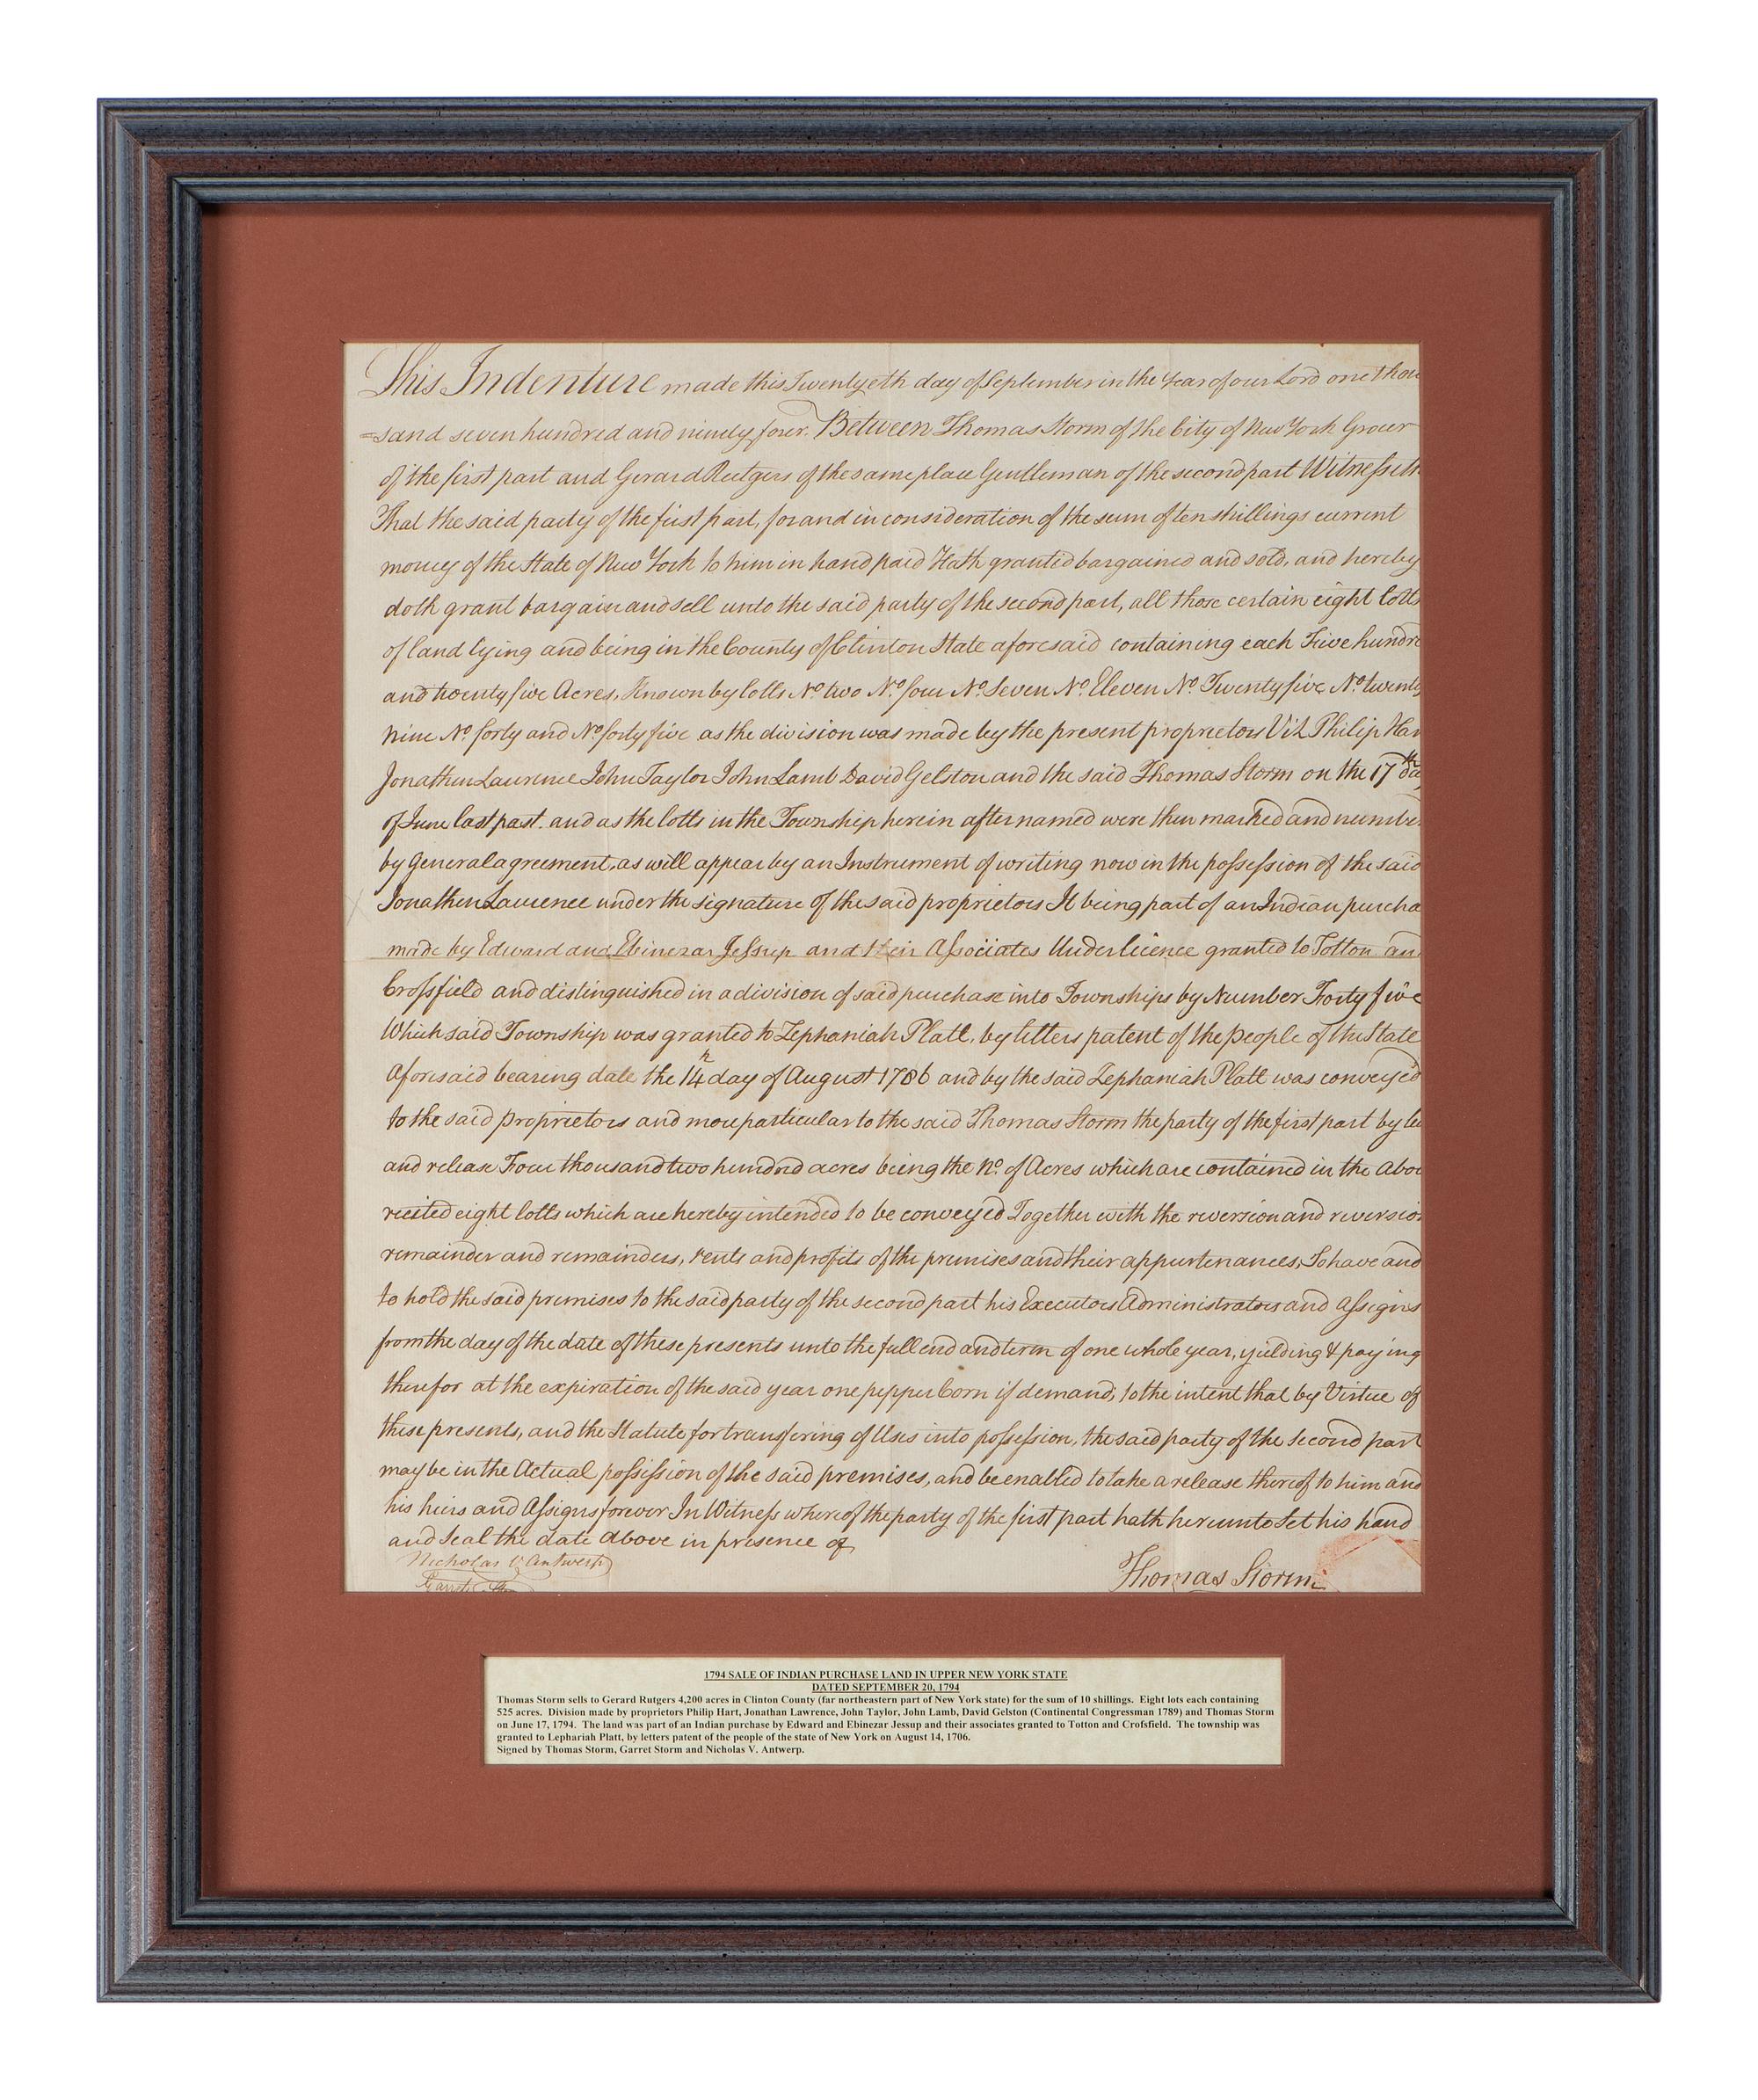 This Indenture made this Twentyeth day of September in the Year of our Lord one thou
=sand seven hundred and ninety four. Between Thomas Storm of the City of New York Grocer
of the first part and Gerard Rutgers of the same place Gentleman of the second part Witnesseth
That the said party of the first part, for and in consideration of the sum of ten shillings current
money of the State of New York to him in hand paid Hath granted bargained and sold, and hereby
doth grant bargain and sell unto the said party of the second part, all those certain eight Lotts
of land lying and being in the County of Clinton State aforesaid containing each Five hundre
and twenty five Acres, Known by lotts No two No four No Seven No Eleven No Twenty five No twenty
nine No forty and No forty five as the division was made by the present proprietors Viz Philip Har
Jonathan Lawrence John Taylor John Lamb David Gelston and the said Thomas Storm on the 17th da
of June last past. and as the lotts in the Township herein after named were then marked and numbe
by General agreement, as will appear by an Instrument of writing now in the possession of the said
Jonathan Lawrence under the signature of the said proprietors It being part of an Indian purcha
made by Edward and Ebinezar Jessup and their Associates Under licence granted to Totton an
Crossfield and distinguished in a division of said purchase into Townships by Number Forty five
Which said Township was granted to Zephaniah Platt, by letters patent of the People of the State
Aforesaid bearing date the 14h day of August 1786 and by the said Zephaniah Platt was conveyed
to the said proprietors and more particular to the said Thomas Storm the party of the first part by le
and release Four thousand two hundred acres being the No. of Acres which are contained in the abov
recited eight lotts which are hereby intended to be conveyed Together with the reversion and reversio
remainder and remainders, rents and profits of the premises and their appurtenances, To have and
to hold the said premises to the said party of the second part his Executors Administrators and Assigns
from the day of the date of these presents unto the full end and term of one whole year, yielding & paying
therefor at the expiration of the said year one pepper Corn if demand, to the intent that by Virtue of
these presents, and the Statute for transfering of Uses into possession, the said party of the Second part
may be in the Actual possission of the said premises, and be enabled to take a release thereof to him and
his heirs and Assigns forever In Witness whereof the party of the first part hath hereunto Set his hand
and Seal the date Above in presence of
Nicholas V Antwerp
Thomas Storm
1794 SALE OF INDIAN PURCHASE LAND IN UPPER NEW YORK STATE
DATED SEPTEMBER 20, 1794
Thomas Storm sells to Gerard Rutgers 4,200 acres in Clinton County (far northeastern part of New York state) for the sum of 10 shillings. Eight lots each containing
525 acres. Division made by proprietors Philip Hart, Jonathan Lawrence, John Taylor, John Lamb, David Gelston (Continental Congressman 1789) and Thomas Storm
on June 17, 1794. The land was part of an Indian purchase by Edward and Ebinezar Jessup and their associates granted to Totton and Crofsfield. The township was
granted to Lephariah Platt, by letters patent of the people of the state of New York on August 14, 1706.
Signed by Thomas Storm, Garret Storm and Nicholas V. Antwerp.